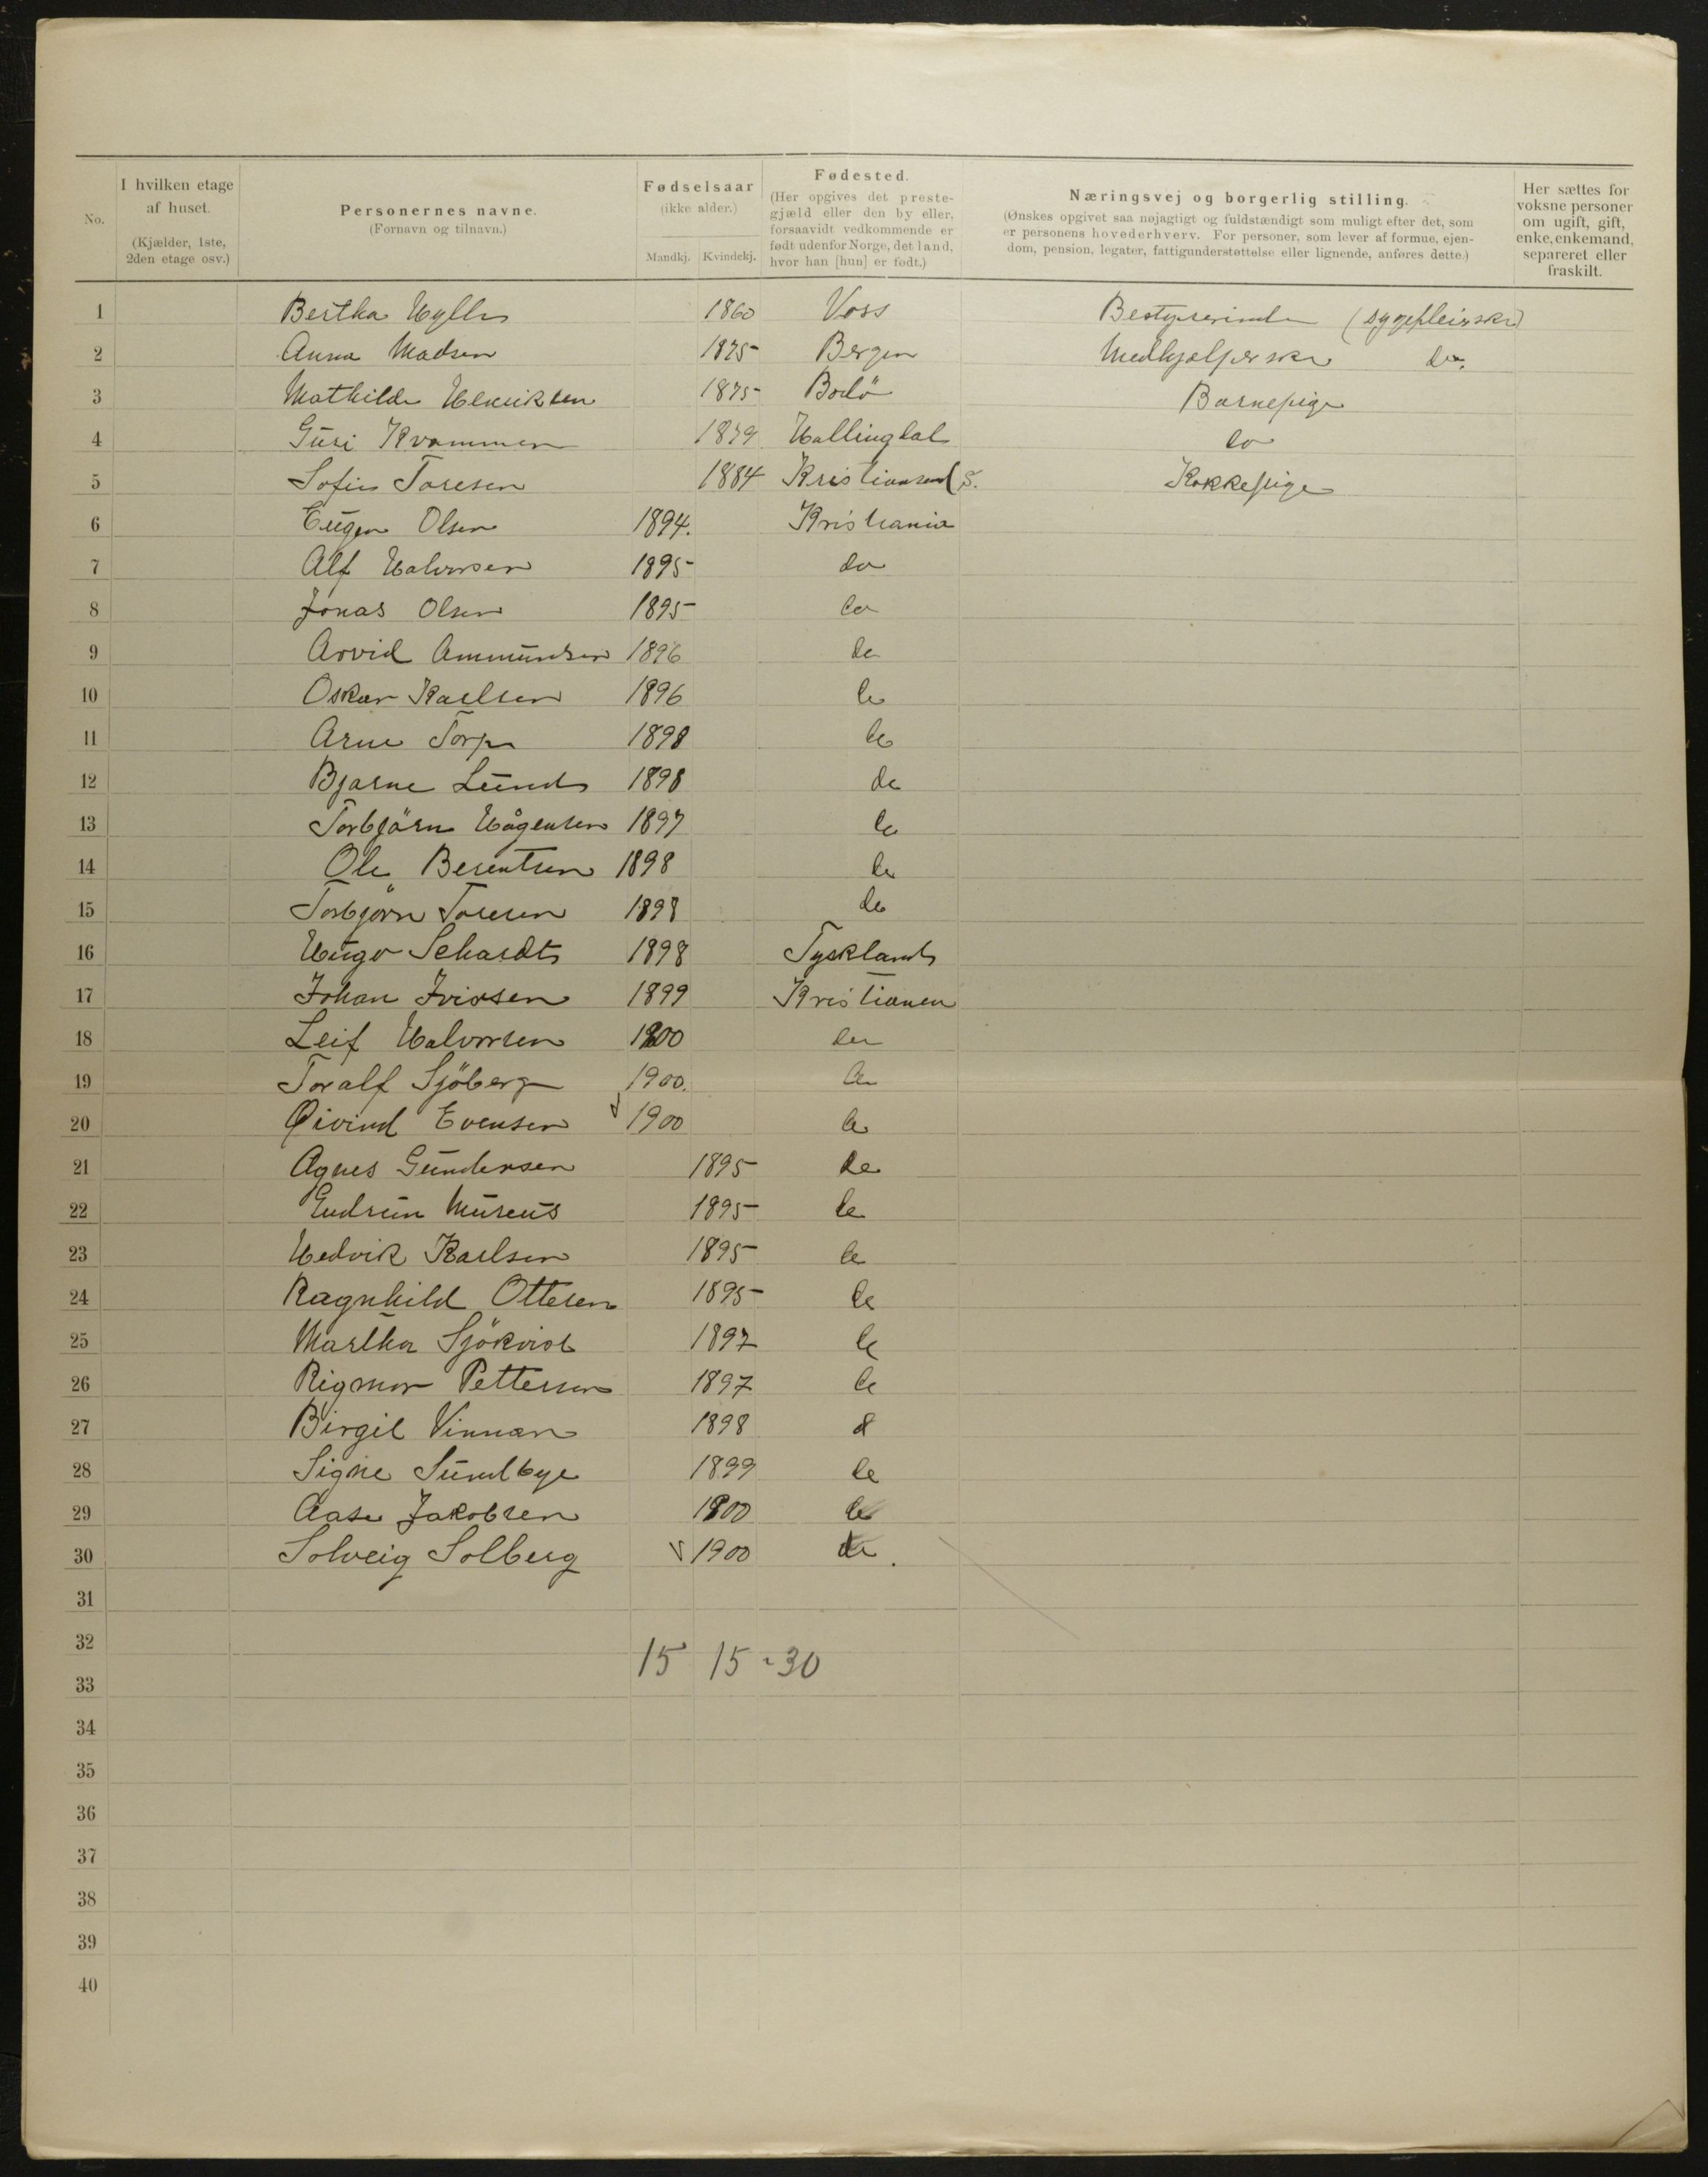 No.
I hvilken etage af huset. (Kjælder, 1ste, 2den etage osv.)
Personernes navne. (Fornavn og tilnavn.)
Fødselsaar (ikke alder.) Mandkj. Kvindekj.
Fødested. (Her opgives det prestegjæld eller den by eller, forsaavidt vedkommende er født udenfor Norge, det land, hvor han [hun] er født.)
Næringsvej og borgerlig stilling. (Ønskes opgivet saa nøjagtigt og fuldstændigt som muligt efter det, som er personens hovederhverv. For personer, som lever af formue, ejendom, pension, legater, fattigunderstøttelse eller lignende, anføres dette.)
Her sættes for voksne personer om ugift, gift, enke, enkemand, separeret eller fraskilt.
1 Bertha 1860 Voss Bestyrerinde (sygepleierske)
2 Anna Madsen 1875 Bergen Medhjælperske do.
3 Mathilde Henriksen 1875 Bodö Barnepige
4 Guri Kvammen 1879 Hallingdal do
5 Sofie Toresen 1884 Kristiansand S. Kokkepige
6 Eugen Olsen 1894. Kristiania
7 Alf Halvorsen 1895 do
8 Jonas Olsen 1895 do
9 Arvid Ammundsen 1896 do
10 Oskar Karlsen 1896 do
11 Arne Torp 1898 do
12 Bjarne Lund 1898 do
13 Torbjörn Hågensen 1897 do
14 Ole Berentsen 1898 do
15 Torbjörn Toresen 1898 do
16 Hugo Schardt 1898 Tyskland
17 Johan Iversen 1899 Kristiania
18 Leif Halvorsen 1900 do
19 Toralf Sjöberg 1900. do
20 Øivind Evensen 1900 do
21 Agnes Gundersen 1895 do
22 Gudrun Mureus 1895 do
23 Hedvik Karlsen 1895 do
24 Ragnhild Ottesen 1895 do
25 Martha Sjökvist 1897 do
26 Rigmor Pettersen 1897 do
27 Birgit Vinnan 1898 d
28 Signe Sundbye 1899 do
29 Aase Jakobsen 1900 do
30 Solveig Solberg 1900 do.
31
32
15 15 = 30
33
34
35
36
37
38
39
40